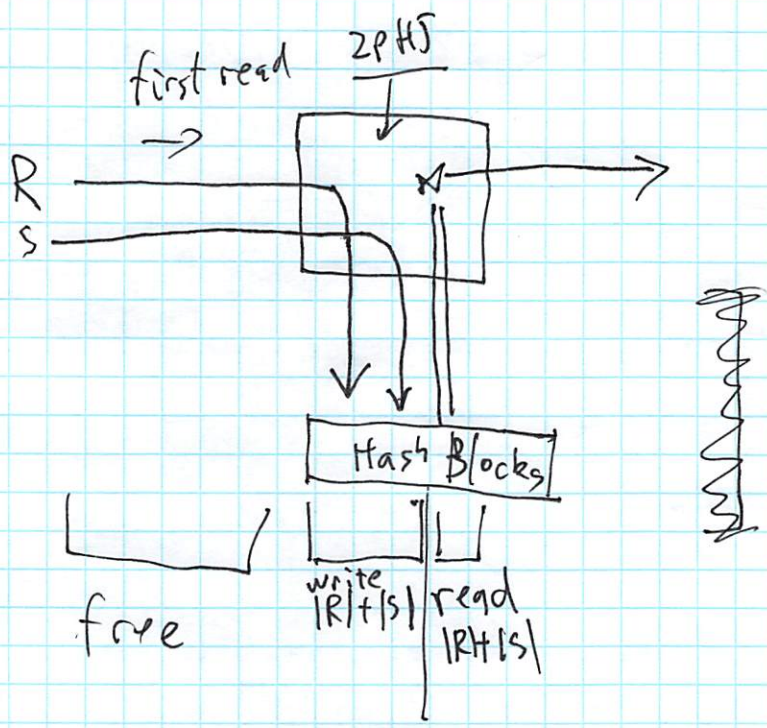 2PHJ
first read
R
S
⋈
Hash Blocks
free
write
|R|+|S|
read
|R|+|S|